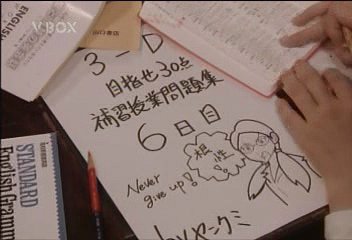 V☆BOX
ENGLISH
山口書店
3-D
目指せ30点
補習授業問題集
6日目
根性
Never
give up!
by ヤンクミ
STANDARD
English Gramm